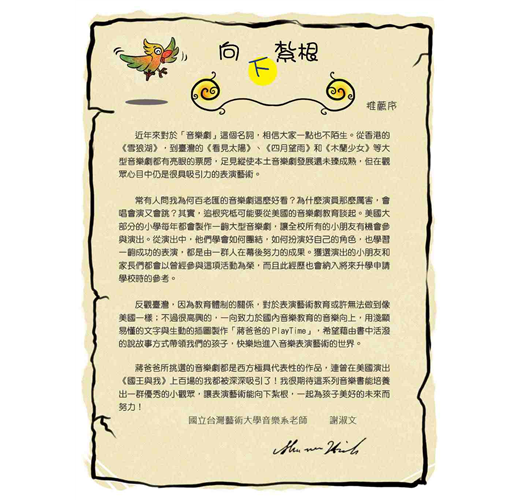 向下紮根
推薦序
近年來對於「音樂劇」這個名詞，相信大家一點也不陌生。從香港的
《雪狼湖》，到臺灣的《看見太陽》、《四月望雨》和《木蘭少女》等大
型音樂劇都有亮眼的票房，足見縱使本土音樂劇發展還未臻成熟，但在觀
眾心目中仍是很具吸引力的表演藝術。
常有人問我為何百老匯的音樂劇這麼好看？為什麼演員那麼厲害，會
唱會演又會跳？其實，追根究柢可能要從美國的音樂劇教育談起。美國大
部分的小學每年都會製作一齣大型音樂劇，讓全校所有的小朋友有機會參
與演出。從演出中，他們學會如何團結，如何扮演好自己的角色，也學習
一齣成功的表演，都是由一群人在幕後努力的成果。獲選演出的小朋友和
家長們都會以曾經參與這項活動為榮，而且此經歷也會納入將來升學申請
學校時的參考。
反觀臺灣，因為教育體制的關係，對於表演藝術教育或許無法做到像
美國一樣；不過很高興的，一向致力於國內音樂教育的音樂向上，用淺顯
易懂的文字與生動的插圖製作「蔣爸爸的PlayTime」，希望藉由書中活潑
的說故事方式帶領我們的孩子，快樂地進入音樂表演藝術的世界。
蔣爸爸所挑選的音樂劇都是西方極具代表性的作品，連曾在美國演出
《國王與我》上百場的我都被深深吸引了！我很期待這系列音樂書能培養
出一群優秀的小觀眾，讓表演藝術能向下紮根，一起為孩子美好的未來而
努力！
國立台灣藝術大學音樂系老師　謝淑文